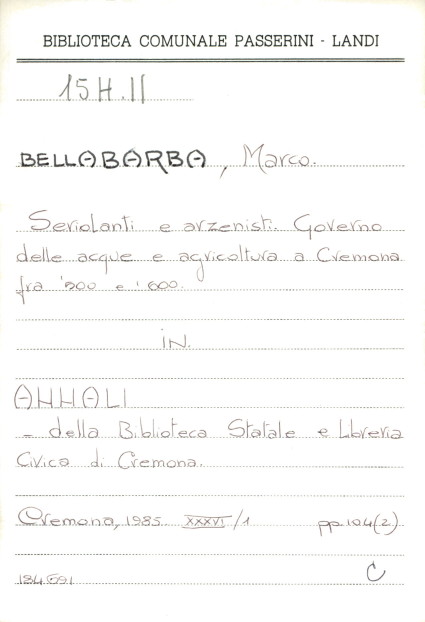 BIBLIOTECA COMUNALE PASSERINI - LANDI
15H.II
BELLABARBA, Marco.
Seriolanti e arzenisti. Governo
delle acque e agricoltura a Cremona
fra '500 e '600.
IN
ANNALI
- della Biblioteca Statale e Libreria
Civica di Cremona.
Cremona, 1985 XXXVI/1 pp. 104(2)
184691 C